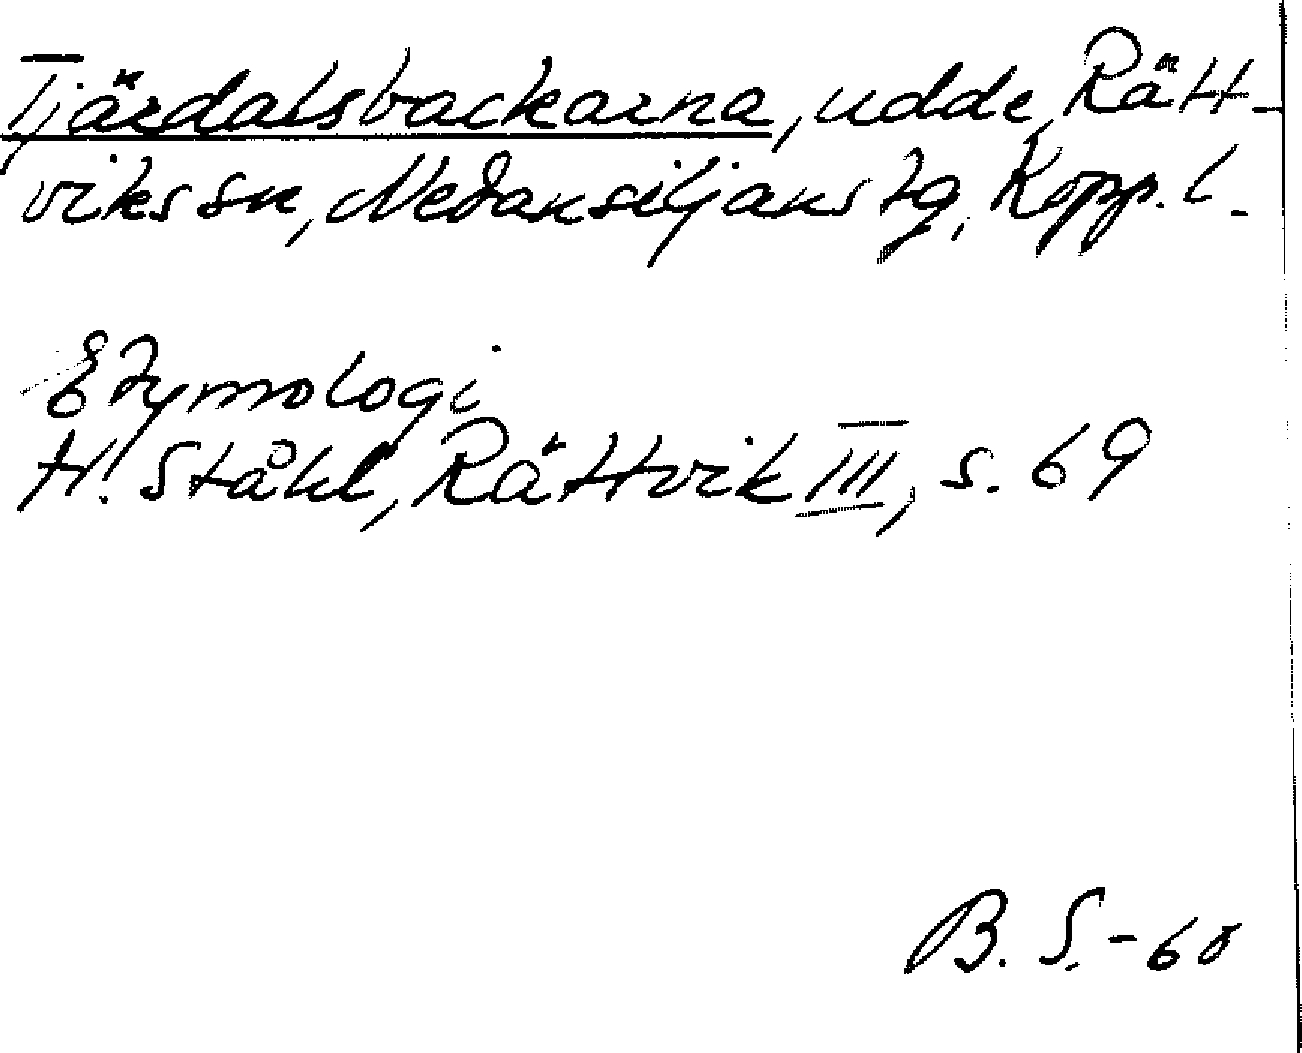 Tjärdalsbackarna, udde, Rätt-
viks sn, Nedansiljans tg, Kopp. l.
Etymologi
H. Ståhl, Rättvik III, s. 69
B. S. - 60